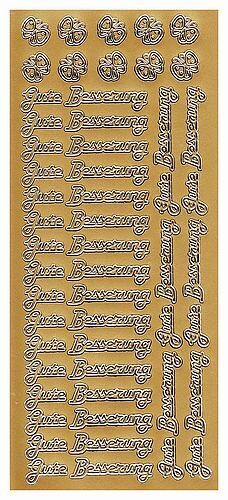 Gute Besserung
Gute Besserung
Gute Besserung
Gute Besserung
Gute Besserung
Gute Besserung
Gute Besserung
Gute Besserung
Gute Besserung
Gute Besserung
Gute Besserung
Gute Besserung
Gute Besserung
Gute Besserung
Gute Besserung
Gute Besserung
Gute Besserung
Gute Besserung
Gute Besserung
Gute Besserung
Gute Besserung
Gute Besserung